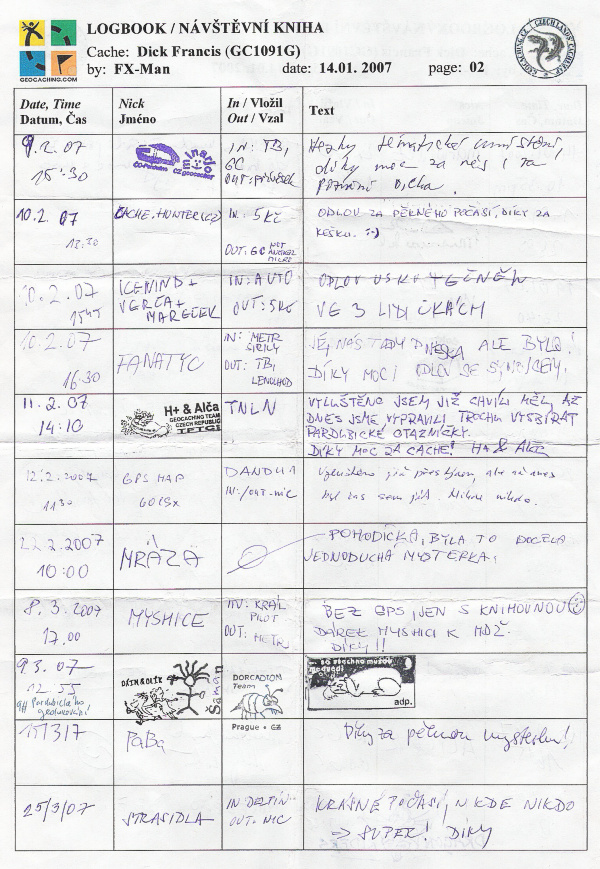 LOGBOOK / NÁVŠTĚVNÍ KNIHA
Cache: Dick Francis (GC1091G)
by: FX-Man date: 14.01. 2007 page: 02
GEOCACHING.COM
Date, Time Nick In / Vložil Text
Datum, Čas Jméno Out / Vzal
9.2.07 IN: TB, Hezky tématické umístění,
GC díky moc za nás i za
15:30 OUT: přívěsek
10.2.07 CACHE.HUNTER(CZ) IN: 5 Kč ODLOV ZA PĚKNÉHO POČASÍ, DÍKY ZA
13:30 OUT: GC KEŠKU. :-)
10.2.07 ICEWIND + IN: AUTO ODLOV
15:45 VERČA + OUT: 5 Kč VE 3 LIDIČKÁCH
MAREČEK
10.2.07 FANATYC IN: METR JÉ, NÁS TADY DNESKA ALE BYLO!
16:30 OUT: TB, DÍKY MOC! ODLOV SE
LENOCHOD
11.2.07 H+ & Alča TNLN VYLUŠTĚNO JSEM JIŽ CHVÍLI MĚL, AŽ
GEOCACHING TEAM DNES JSME VYPRAVILI TROCHU VYSBÍRAT
CZECH REPUBLIC PARDUBICKÉ OTAZNÍČKY.
14:10 TFTG! DÍKY MOC ZA CACHE! H+ & Alča
12.2.2007 GPS MAP
1130 60CSX IN:/OUT-NIC byl čas sem jít. Nikde nikdo.
22.2.2007 MRÁZA POHODIČKA, BYLA TO DOCELA
10:00 JEDNODUCHÁ MYSTERKA.
8.3.2007 MYSHICE INV: KRÁL BEZ GPS, JEN S KNIHOVNOU
PILOT DÁREK MYSHICI K MDŽ.
17.00 OUT: METR DÍKY!!
9 3. 07 Šaman DORCADION
12 55 Team
Prague • CZ
... so všechno můžou
medvědi
adp.
15/3/7 PaBa Díky za pěknou mysterku!
25/3/07 STRASIDLA IN DELFÍN KRÁSNÉ POČASÍ, NIKDE NIKDO
OUT: NIC => SUPER! DÍKY